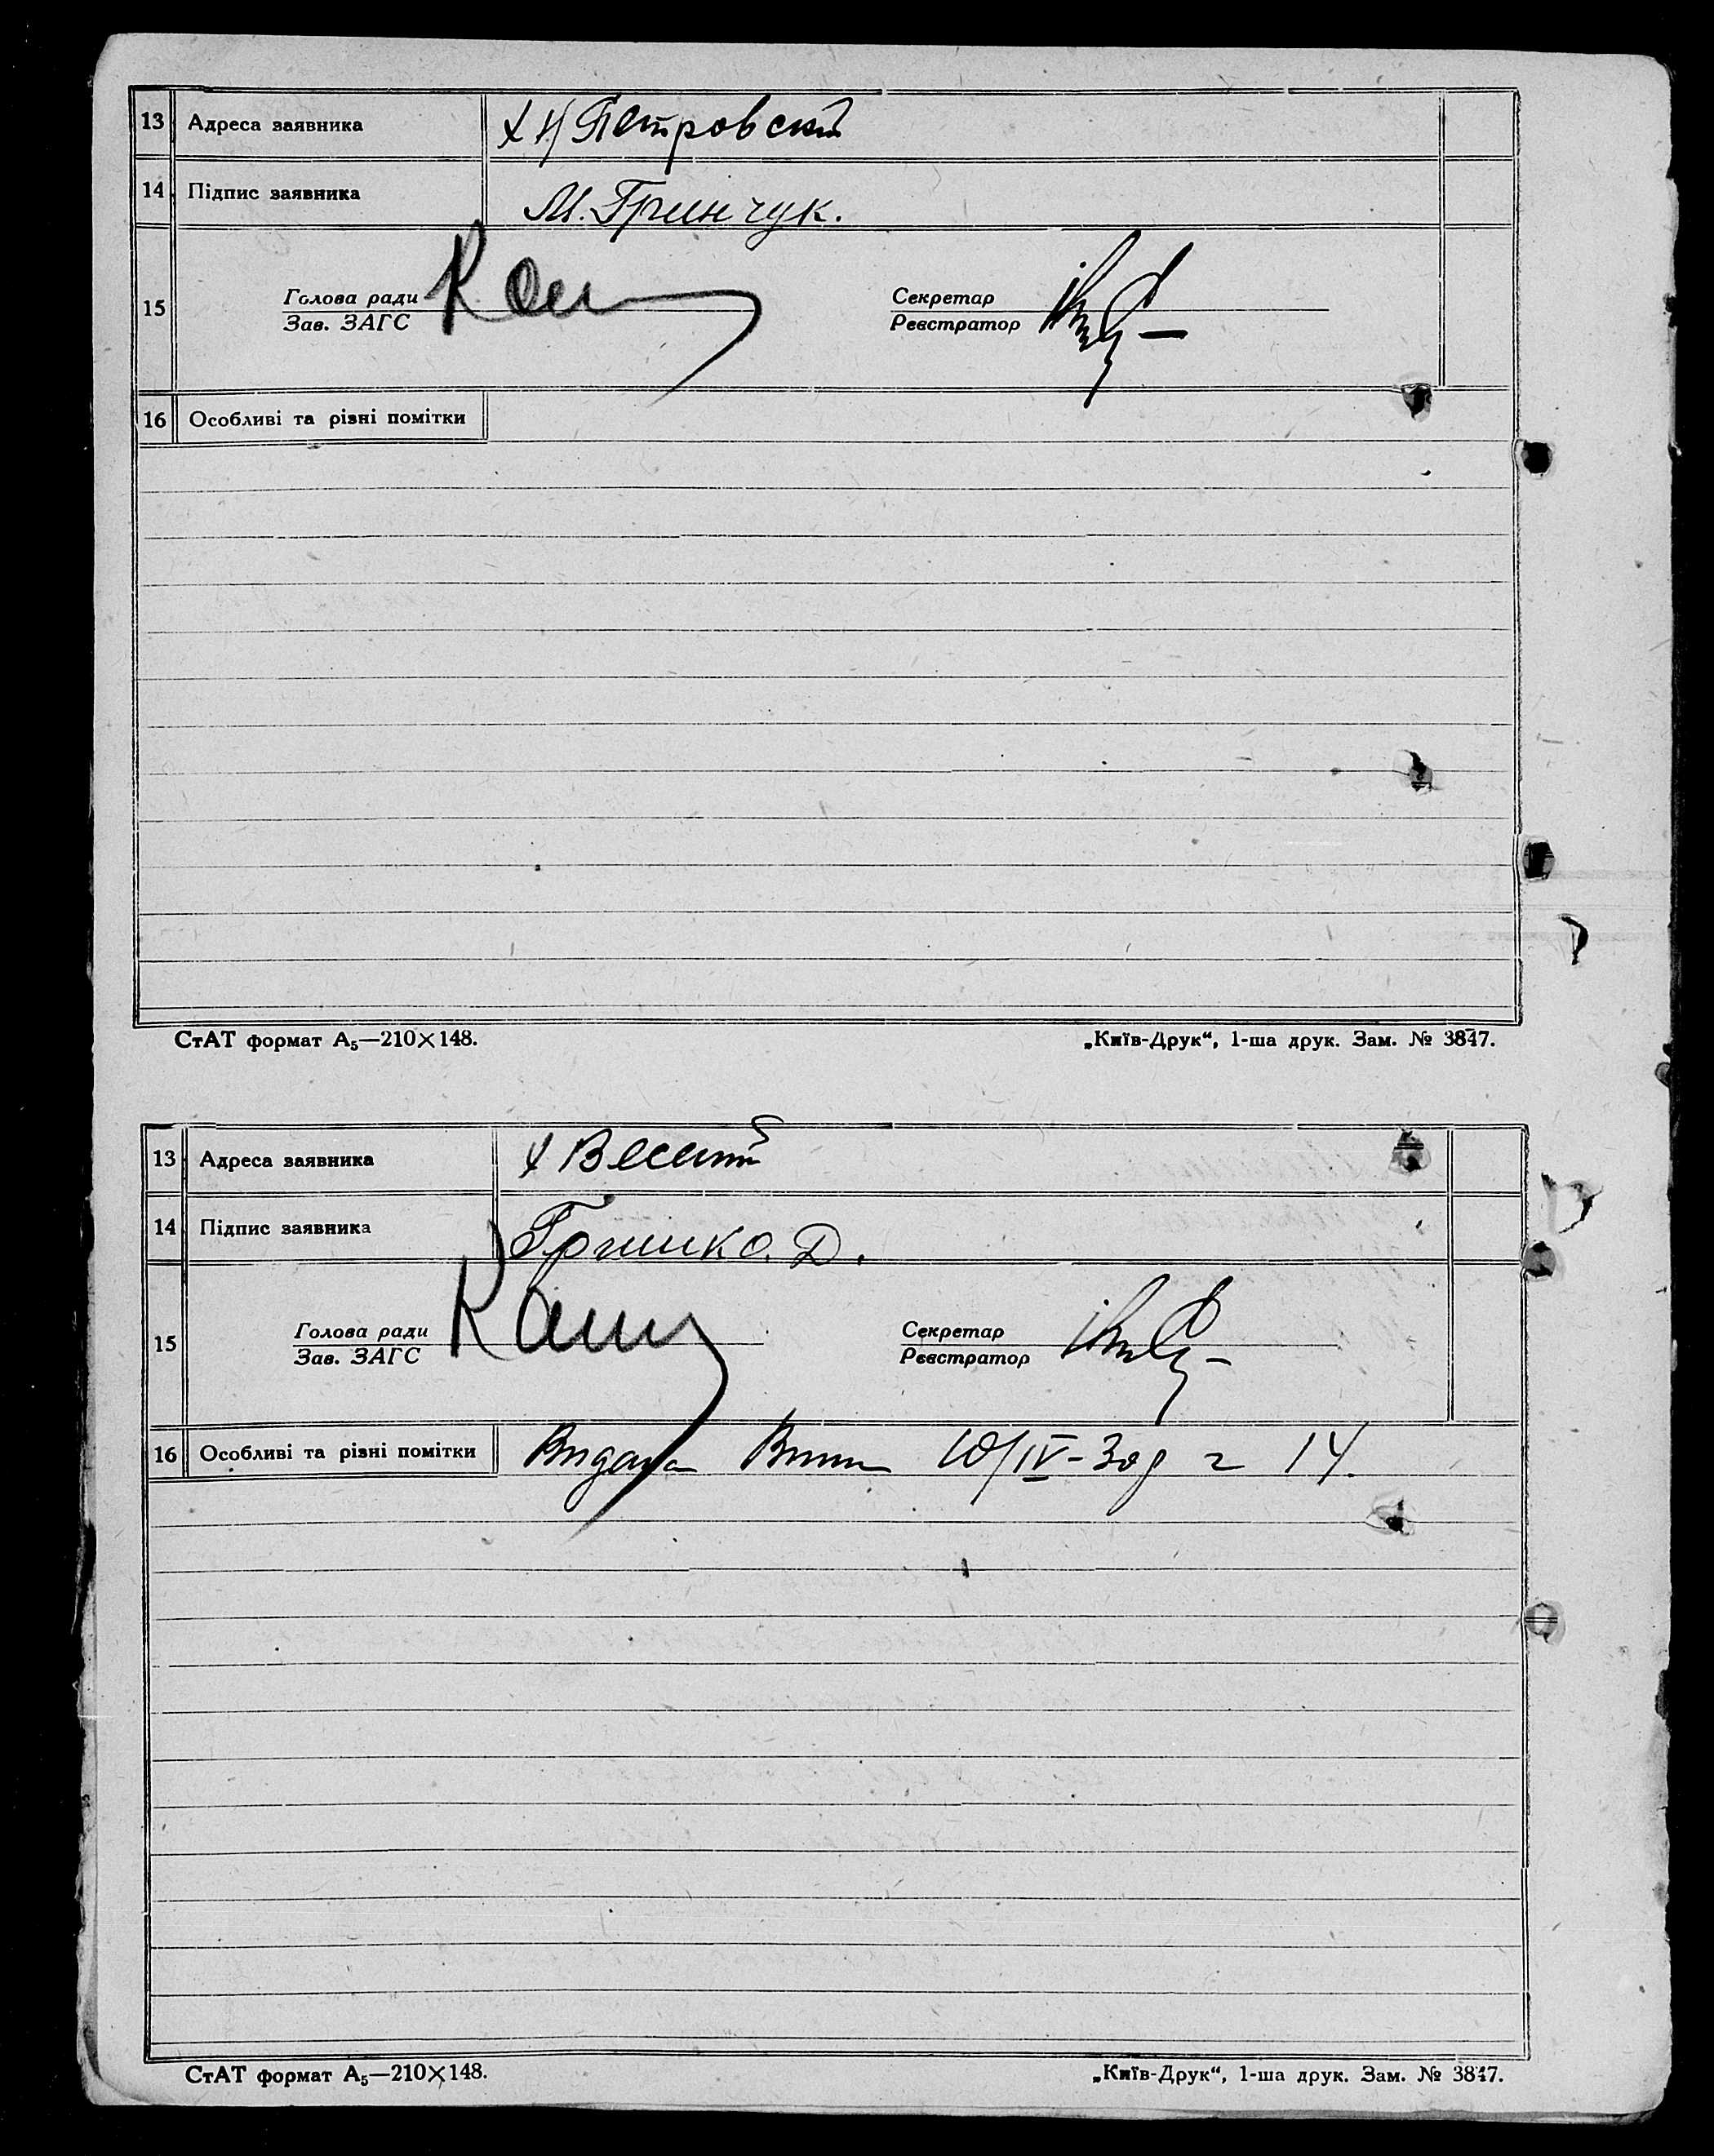 13 Адреса заявника х Н Петровский
14 Підпис заявника М. Грінчук.
15 Голова ради Секретар
Зав. ЗАГС Реєстратор
16 Особливі та різні помітки
СтАТ формат А₅—210×148. „Київ-Друк“, 1-ша друк. Зам. № 3847.
13 Адреса заявника х Веселий
14 Підпис заявника Гришко. Д.
15 Голова ради Секретар
Зав. ЗАГС Реєстратор
16 Особливі та різні помітки Видана 10/IV-30р 14.
СтАТ формат А₅—210×148. „Київ-Друк“, 1-ша друк. Зам. № 3847.